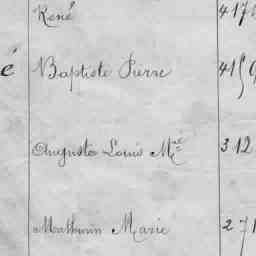 René 417
é Baptiste Pierre 4159
Auguste Louis Mie 312
Mathurin Marie 271